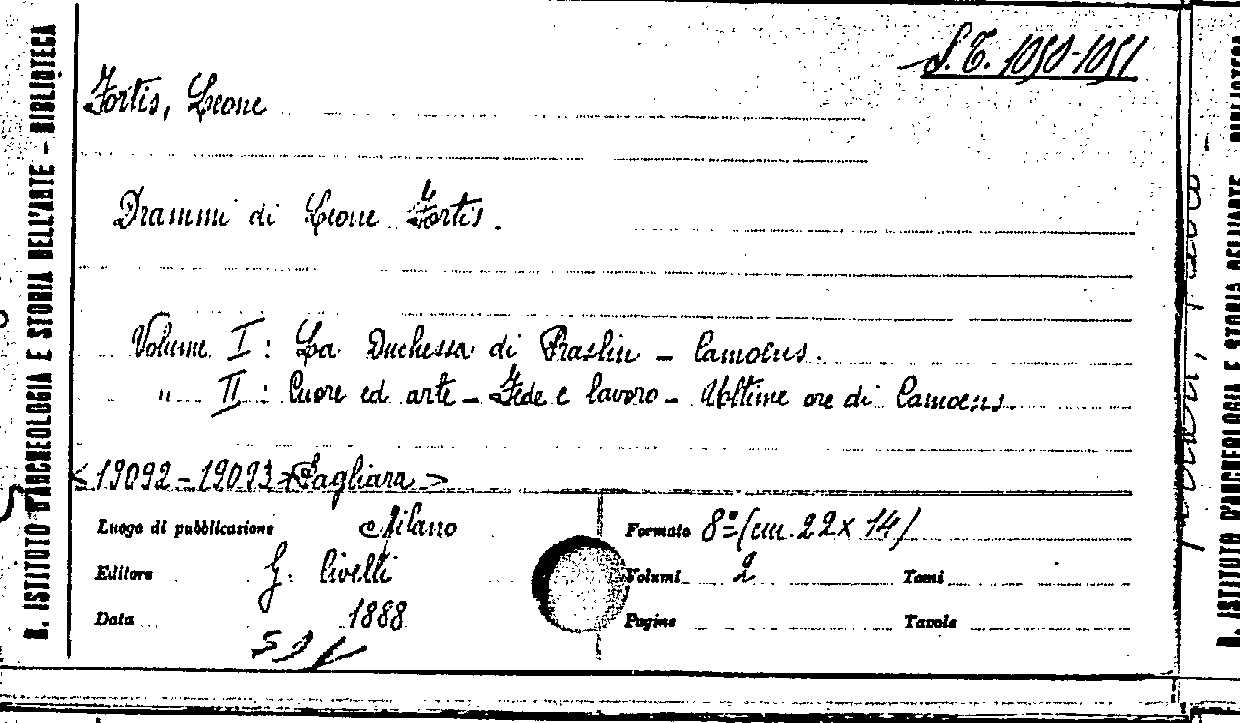 S.T. 1050-1051
R. ISTITUTO D'ARCHEOLOGIA E STORIA DELL'ARTE - BIBLIOTECA
Fortis, Leone
Drammi di Leone Fortis.
Volume I : La Duchessa di Praslin - Camoens.
" II : Cuore ed arte - Fede e lavoro - Ultime ore di Camoens.
<19092-19093 Pagliara>
Luogo di pubblicazione Milano
Formato 8º (cm. 22 x 14)
Editore G. Civelli
Volumi 2 Tomi
Data 1888
Pagine Tavole